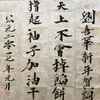 新年賀詞
天上不會掉餡餅
擼起袖子加油干
公元二零一七年元月